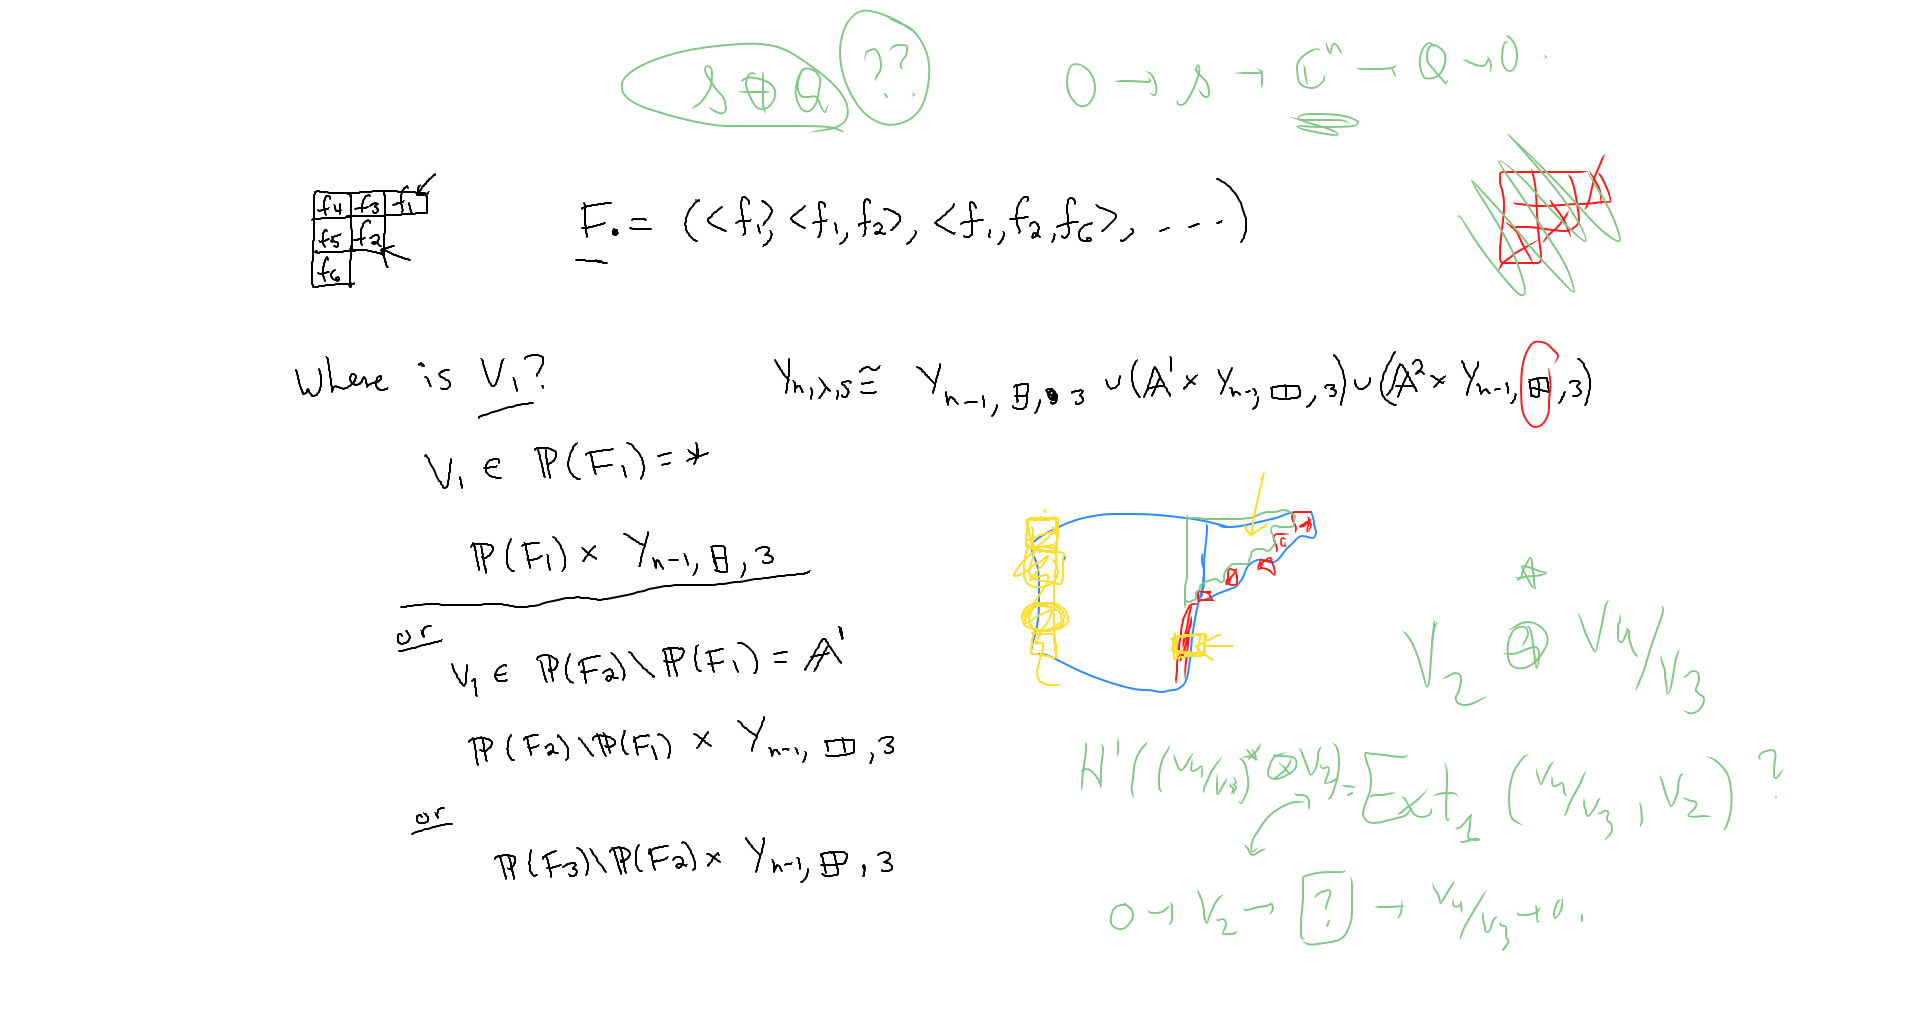 S ⊕ Q ??
0 → S → ℂⁿ → Q → 0.
f4 f3 f1
f5 f2
f6
F. = (<f1>, <f1, f2>, <f1, f2, f6>, ....)
Where is V₁?
Y_{n,λ,s} ≅ Y_{n-1, ⊟, 3} ∪ (𝔸¹ × Y_{n-1, □□, 3}) ∪ (𝔸² × Y_{n-1, ⊞, 3})
V₁ ∈ ℙ(F₁) = *
ℙ(F₁) × Y_{n-1, ⊟, 3}
or
V₁ ∈ ℙ(F₂) \ ℙ(F₁) = 𝔸¹
ℙ(F₂) \ ℙ(F₁) × Y_{n-1, □□, 3}
or
ℙ(F₃) \ ℙ(F₂) × Y_{n-1, ⊞, 3}
*
V₂ ⊕ V₄/V₃
H¹((V₄/V₃)* ⊗ V₂) = Ext₁(V₄/V₃, V₂)?
0 → V₂ → ? → V₄/V₃ → 0.